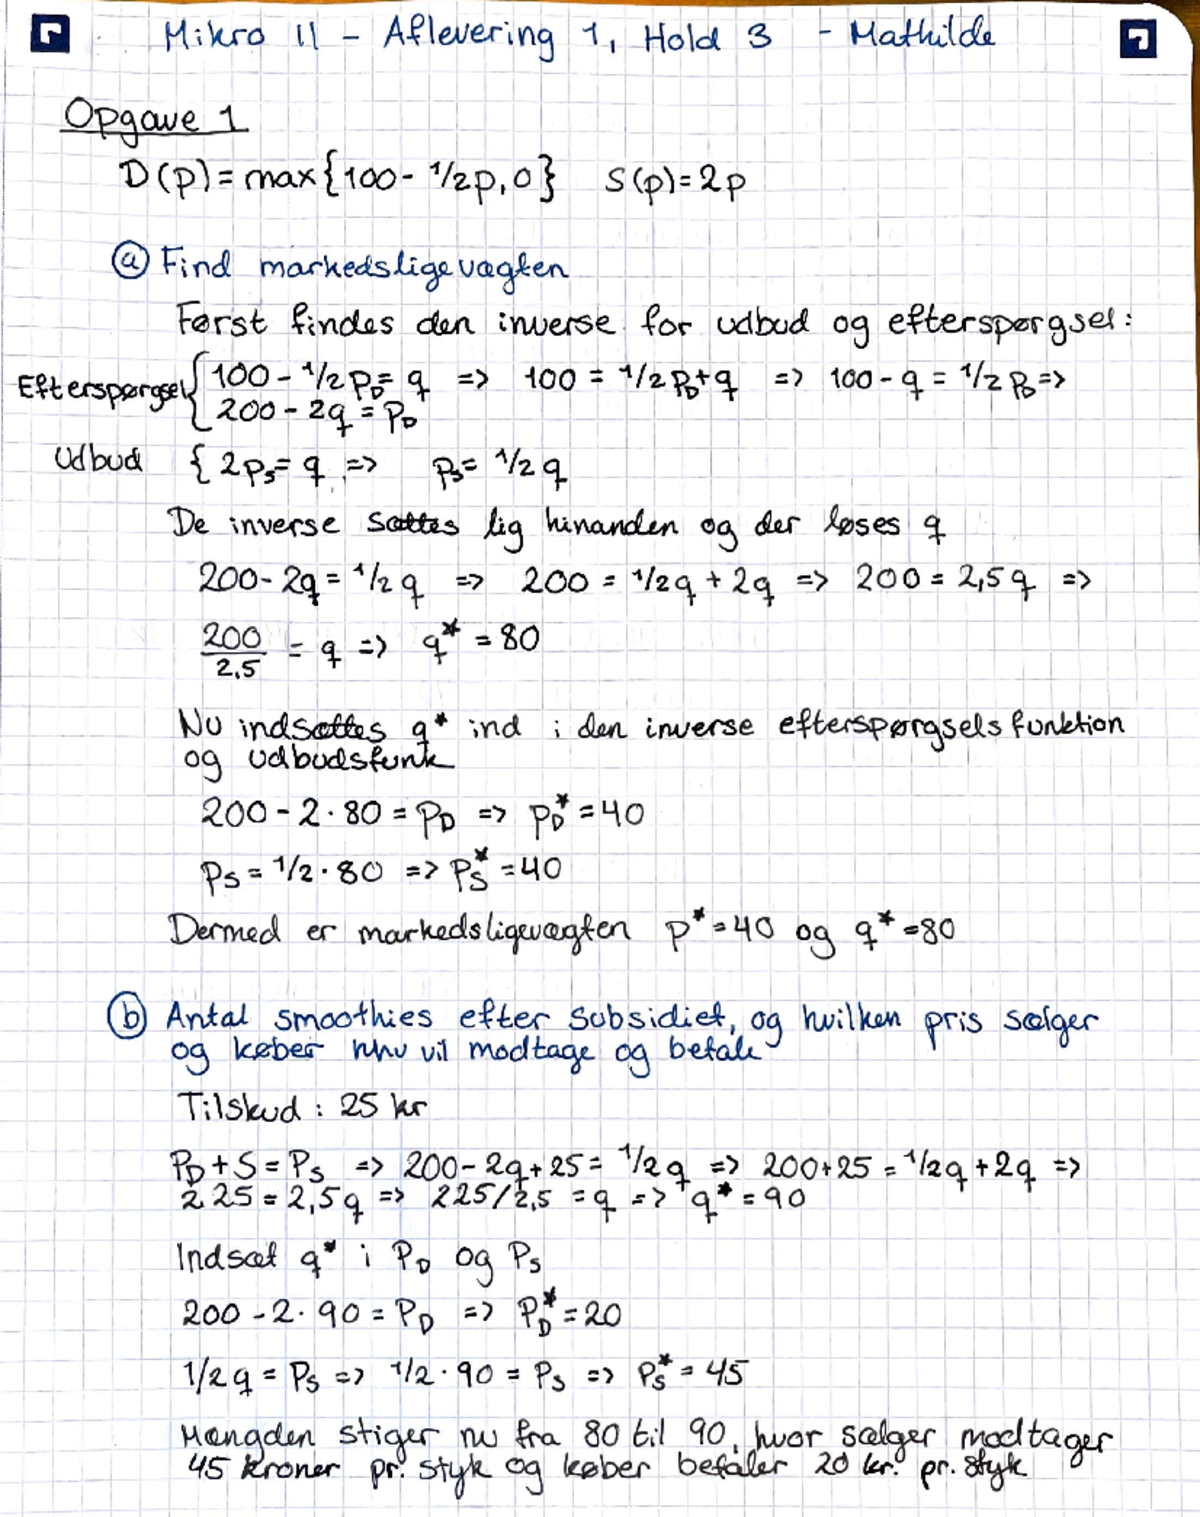 Mikro II - Aflevering 1, Hold 3 - Mathilde
Opgave 1
D(p)=max{100- 1/2p,0} S(p)=2p
(a) Find markedsligevægten
Først findes den inverse for udbud og efterspørgsel:
Efterspørgsel { 100-1/2 p_D = q => 100 = 1/2 p_D+q => 100-q = 1/2 p_D =>
200-2q = p_D
Udbud { 2p_s = q => p_s = 1/2 q
De inverse sættes lig hinanden og der løses q
200-2q = 1/2 q => 200 = 1/2q + 2q => 200 = 2,5q =>
200/2,5 = q => q* = 80
Nu indsættes q* ind i den inverse efterspørgsels funktion
og udbudsfunk
200-2·80 = p_D => p_D* = 40
p_S = 1/2·80 => p_S* = 40
Dermed er markedsligevægten p* = 40 og q* = 80
(b) Antal smoothies efter subsidiet, og hvilken pris sælger
og køber hhv vil modtage og betale
Tilskud : 25 kr
P_D + S = P_S => 200-2q+25 = 1/2q => 200+25 = 1/2q+2q =>
225 = 2,5q => 225/2,5 = q => q* = 90
Indsæt q* i P_D og P_S
200-2·90 = P_D => P_D* = 20
1/2q = P_S => 1/2·90 = P_S => P_S* = 45
Mængden stiger nu fra 80 til 90, hvor sælger modtager
45 kroner pr. styk og køber betaler 20 kr. pr. styk